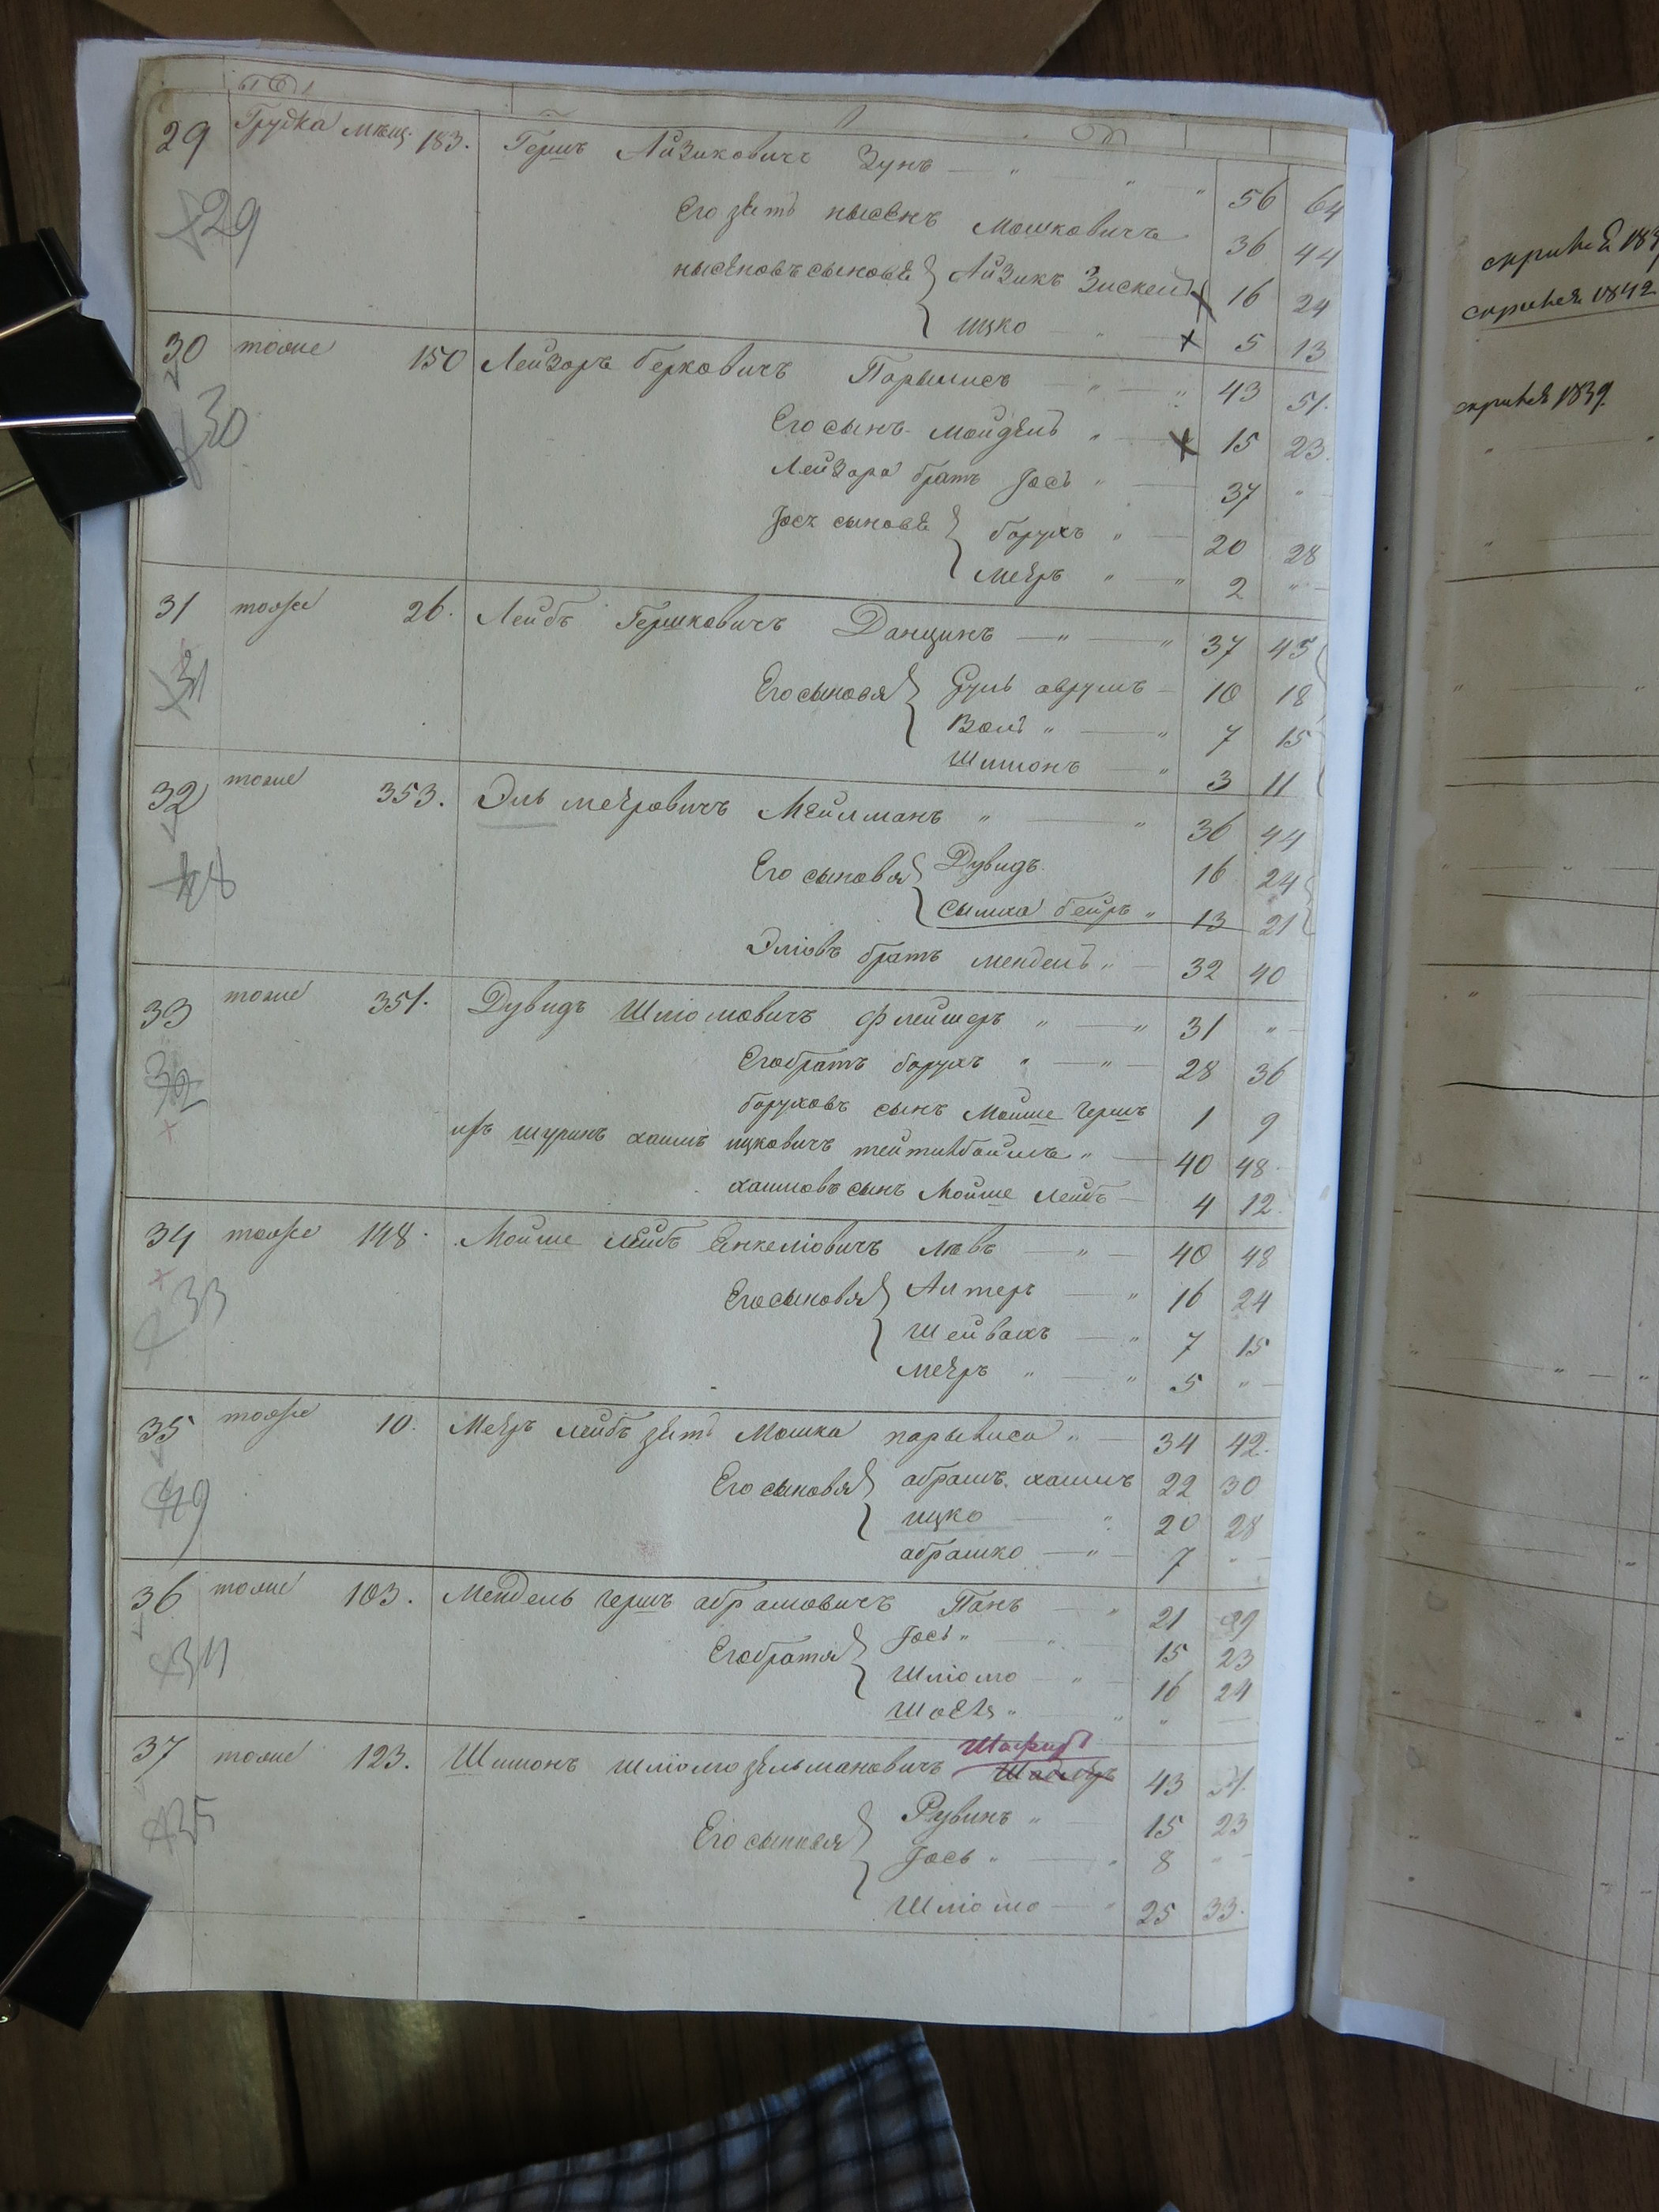 29 Грудка мѣщ. 183. Гершъ Айзиковичъ Зунъ — " — " — "
56 64
29 Его зять нысенъ Мошковичъ 36 44
нысеновъ сыновѣ { Айзикъ Зискель 16 24
ицко " 5 13
30 тоже 150 Лейзоръ берковичъ — " — " 43 51.
30 Его сынъ " — 15 23.
Лейзора братъ Іось " — 37 "
Іося сыновѣ { борухъ " — 20 28
меѣръ " — " 2 " —
31 тоже 26. Лейбъ Гершковичъ Данцинъ — " — " 37 45
31 Его сыновя { Сруль аврумъ — 10 18
Вольъ " — " 7 15
Шимонъ — " 3 11
32 тоже 353. Эль меѣровичъ Мейлманъ " — " 36 44
48 Его сыновя { Дувидъ 16 24
сымха беиръ " 13 21
Эліовъ братъ мендель " — 32 40
33 тоже 351. Дувидъ Шліомовичъ флейшеръ " — " 31 " —
32 Его братъ борухъ " — " — 28 36
боруховъ сынъ Мойше гершъ 1 9
ихъ шуринъ хаимъ ицковичъ " — 40 48
хаимовъ сынъ Мойше лейбъ — 4 12.
34 тоже 148. Мойше лейбъ Янкеліовичъ левъ — " — 40 48
33 Его сыновя { Алтеръ — " 16 24
Шейвахъ — " 7 15
меѣръ " — " 5 " —
35 тоже 10. Меѣръ лейбъ зять Мошка " — 34 42.
49 Его сыновя { абрамъ хаимъ 22 30
ицко — " 20 28
абрашко — " — 7 " —
36 тоже 103. Мендель гершъ абрамовичъ Панъ — " 21
34 Его братя { Іось " — " 15 23
Шліомо — " — 16 24
" — " " —
37 тоже 123. Шимонъ шліомо зельмановичъ 43
35 Его сыновя { Рувинъ " — 15 23
Іось " — " 8 " —
Шліомо — " 25 33.
1842
1839.